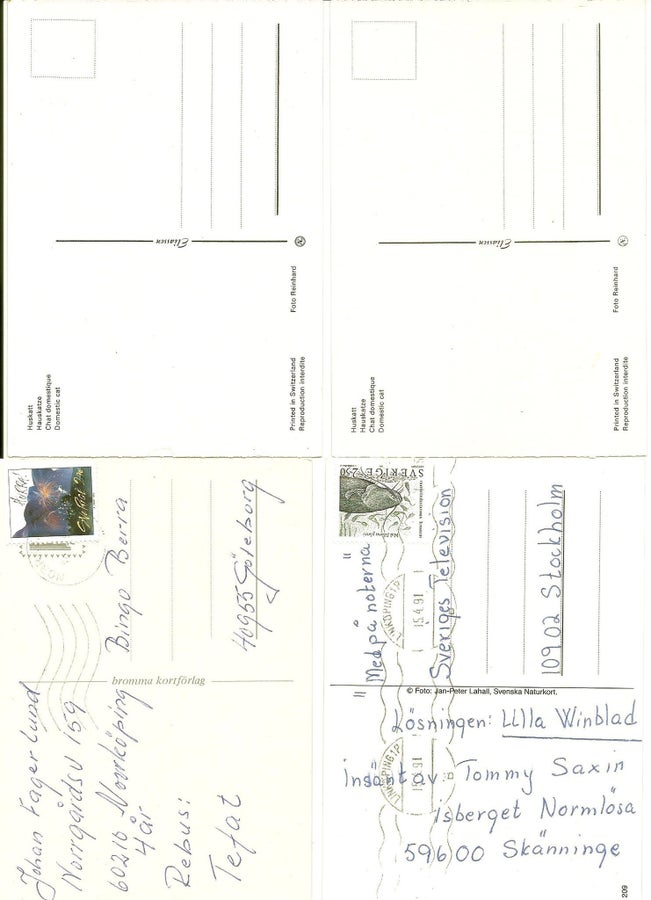 Eliasen
Huskatt
Hauskatze
Chat domestique
Domestic cat
Foto Reinhard
Printed in Switzerland
Reproduction interdite
Eliasen
Huskatt
Hauskatze
Chat domestique
Domestic cat
Foto Reinhard
Printed in Switzerland
Reproduction interdite
Bingo Berra
40955 Göteborg
bromma kortförlag
Johan Fagerlund
Norrgårdsv 159
60216 Norrköping
4 år
Rebus:
Tefat
SVERIGE 250
LINKÖPING 1
15.4.91
" Med på noterna "
Sveriges Television
10902 Stockholm
© Foto: Jan-Peter Lahall, Svenska Naturkort.
Lösningen: Lilla Winblad
Insänt av: Tommy Saxin
Isberget Normlösa
59600 Skänninge
209